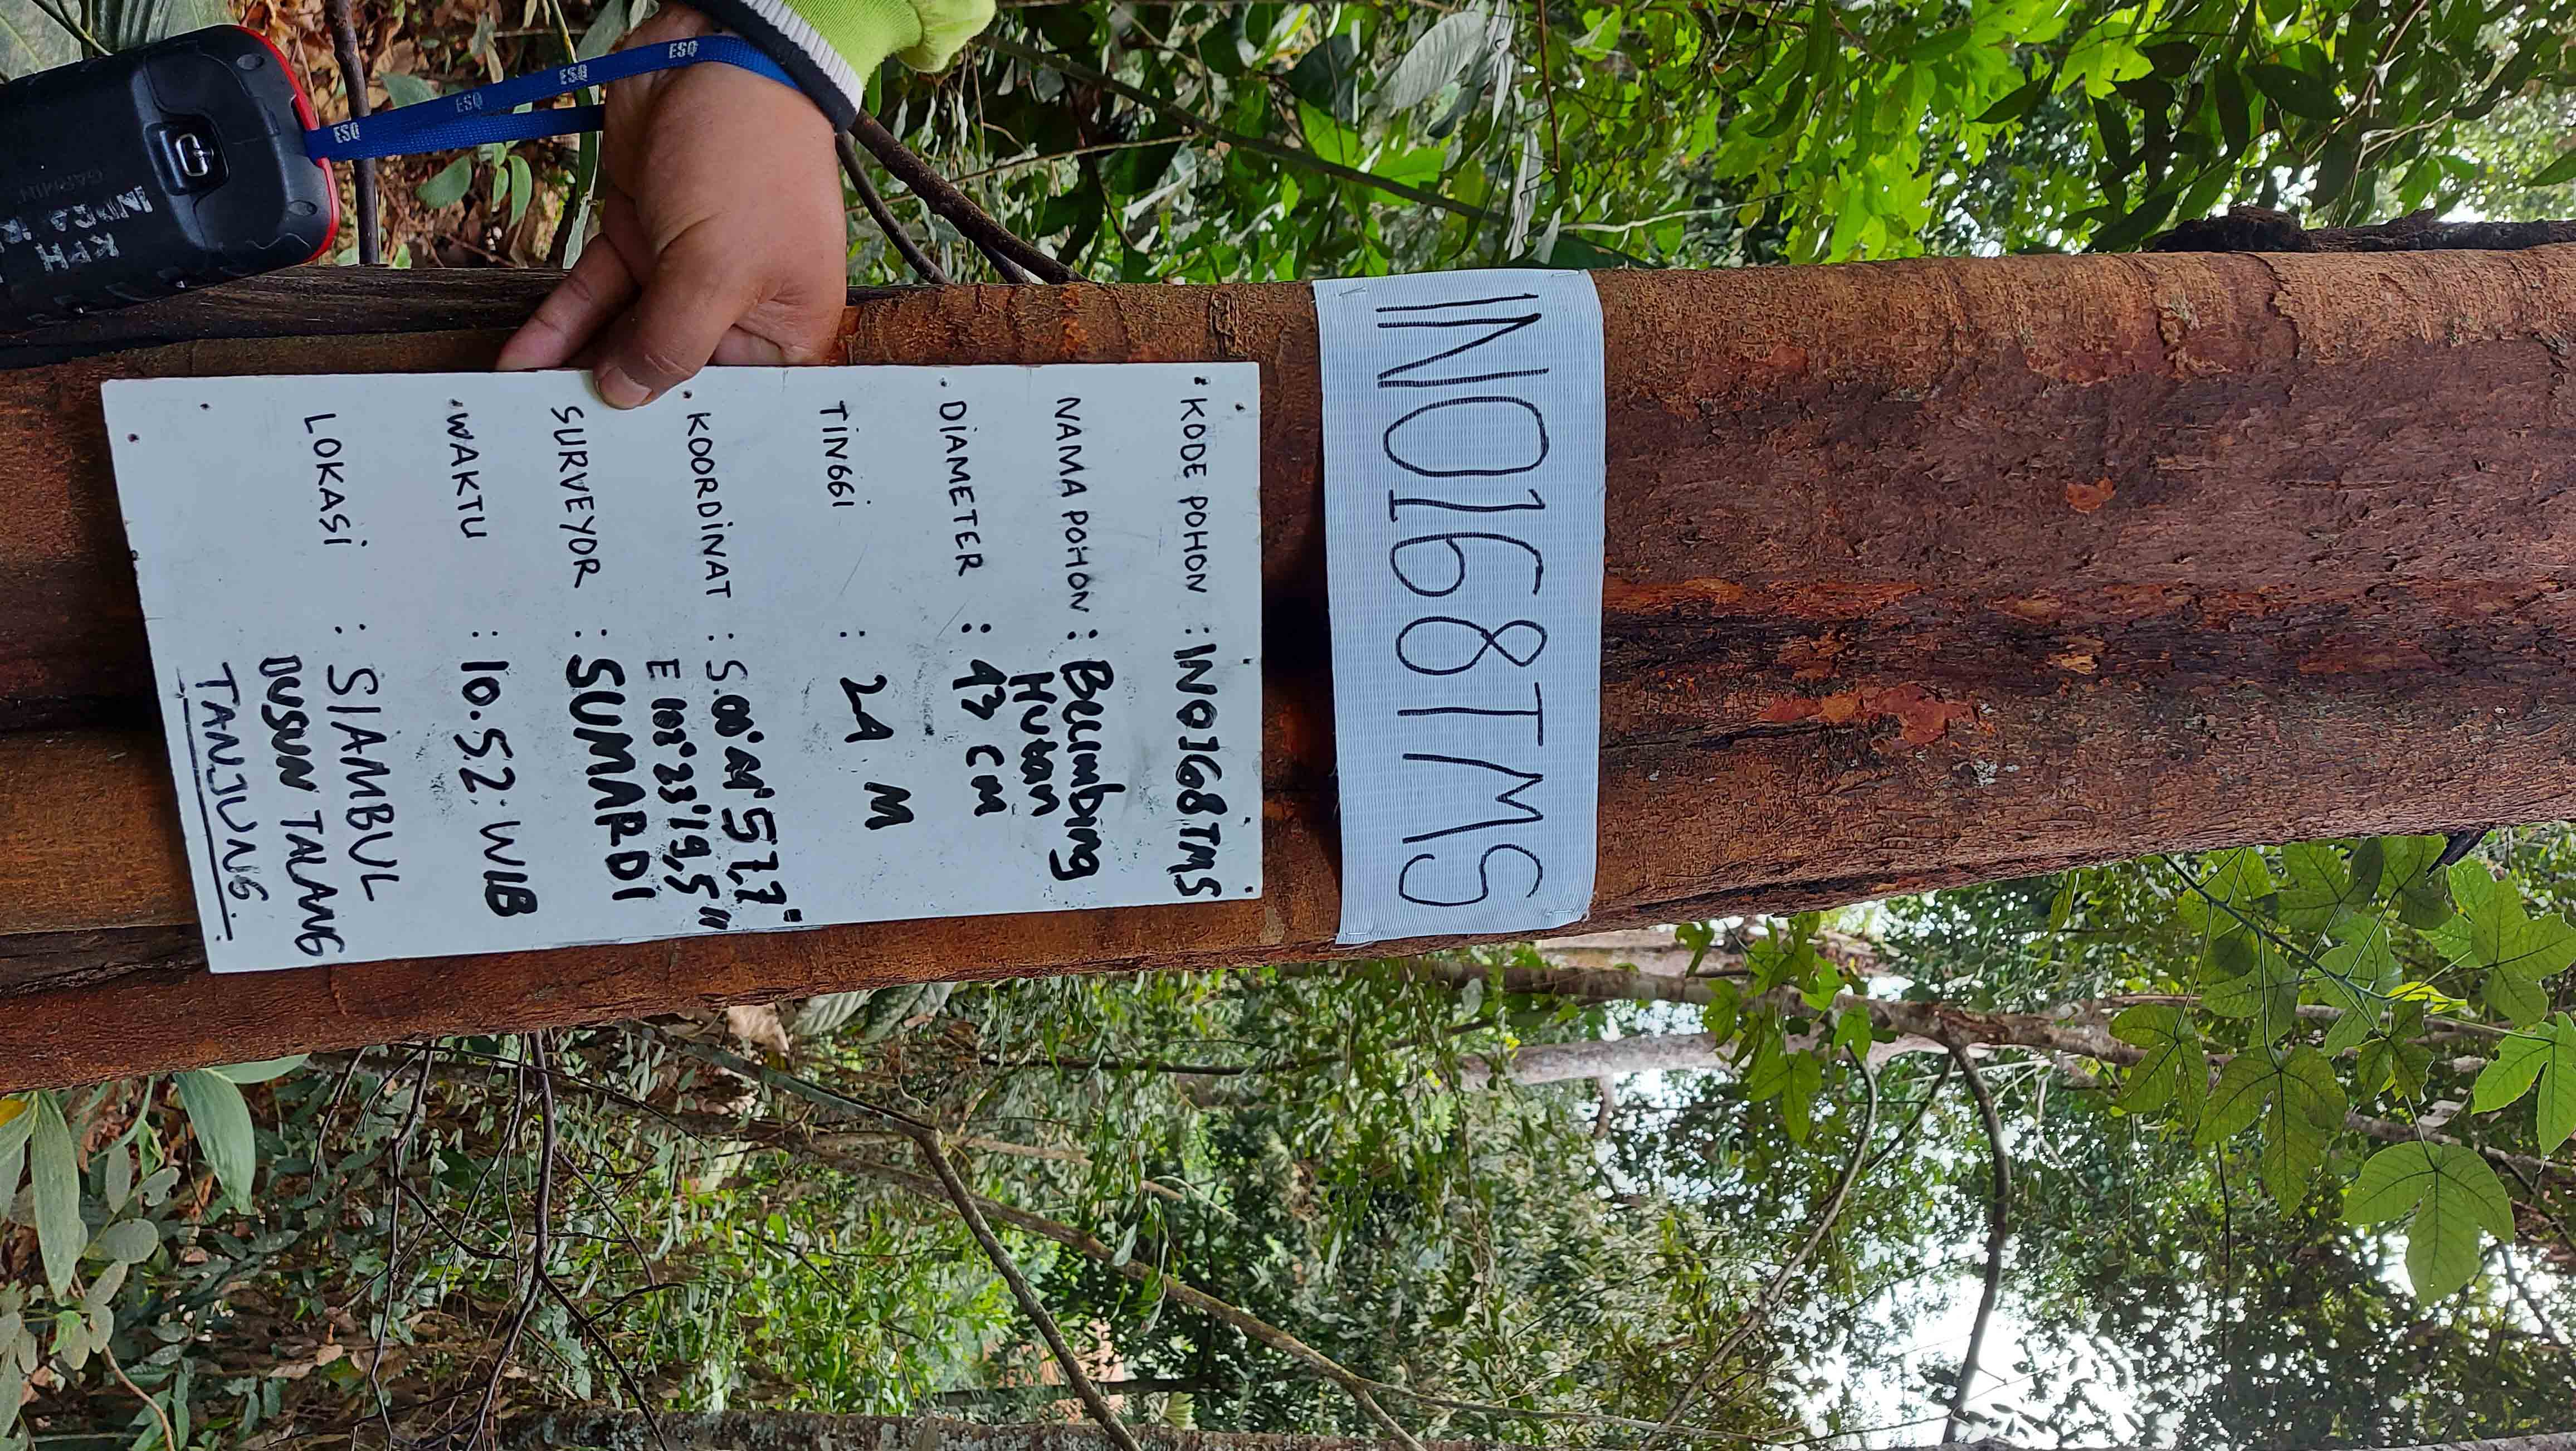 INO168TMS
KODE POHON : INO168TMS
NAMA POHON : Belimbing
Hutan
DIAMETER : 43 CM
TINGGI : 24 M
KOORDINAT : S.00°44'57,7"
E 102°23'19,5"
SURVEYOR : SUMARDI
WAKTU : 10.52 WIB
LOKASI : SIAMBUL
DUSUN TALANG
TANJUNG.
ESQ
ESQ
ESQ
ESQ
GARMIN
KPH